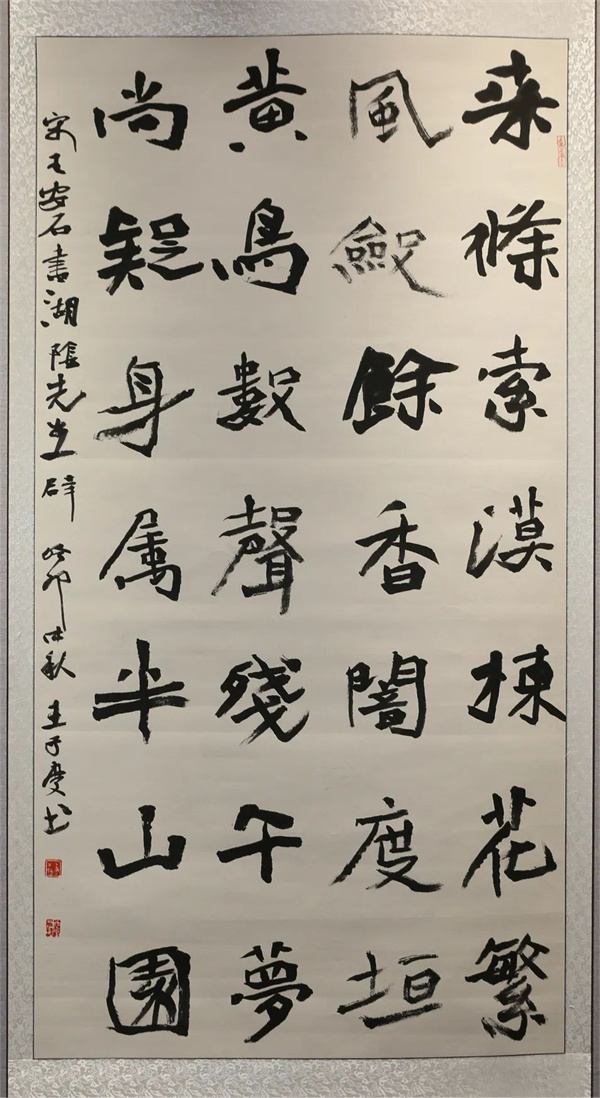 桒條索漠楝花繁
風斂餘香闇度垣
黃鳥數聲殘午夢
尚疑身属半山園
宋王安石書湖陰先生壁 癸卯仲秋 王子慶书